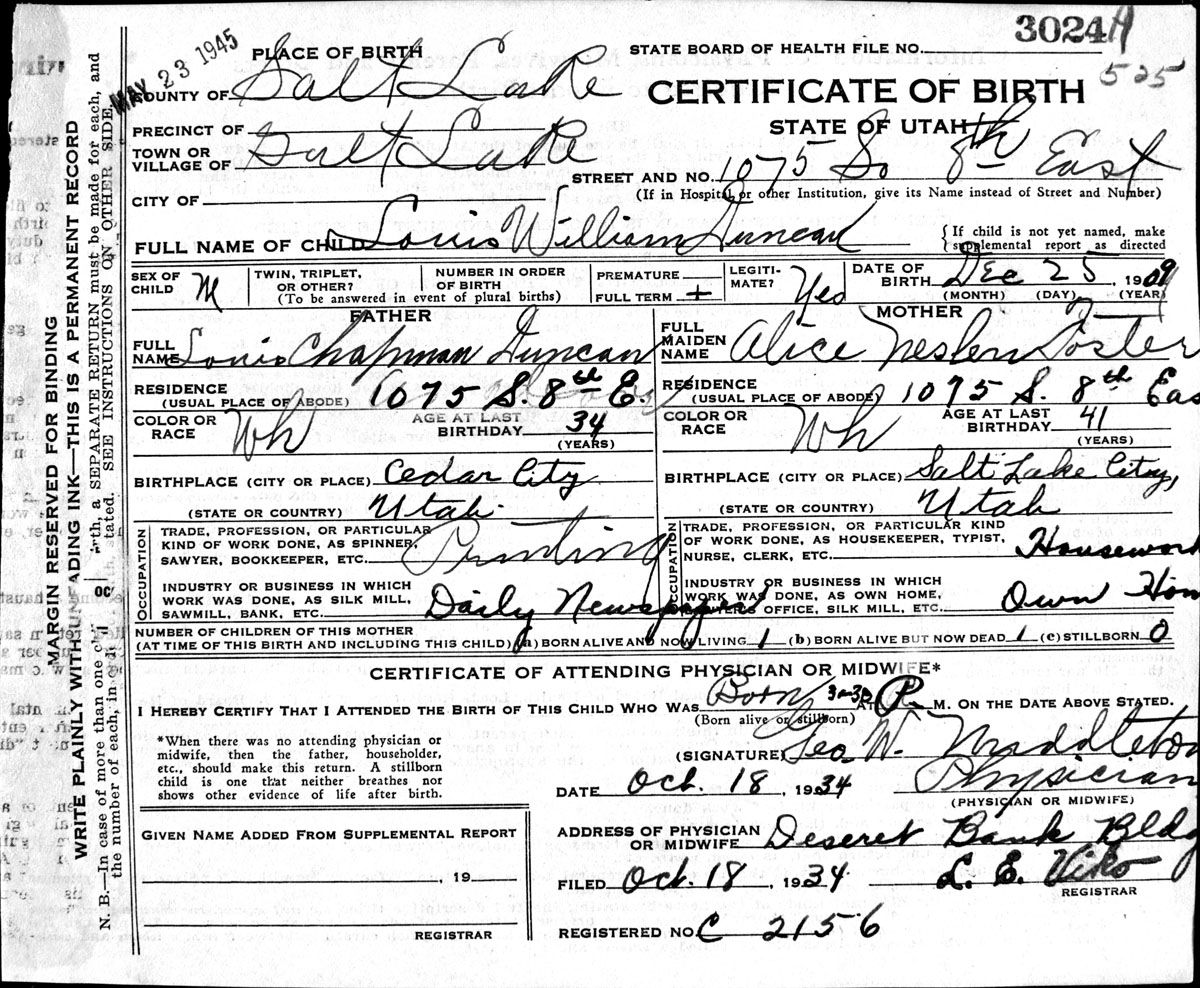 3024A
525
MAY 23 1945
PLACE OF BIRTH
STATE BOARD OF HEALTH FILE NO.
COUNTY OF Salt Lake
CERTIFICATE OF BIRTH
STATE OF UTAH
PRECINCT OF
TOWN OR
VILLAGE OF Salt Lake
STREET AND NO. 1075 So 8th East
(If in Hospital or other Institution, give its Name instead of Street and Number)
CITY OF
FULL NAME OF CHILD Louis William Duncan
{If child is not yet named, make
supplemental report as directed
SEX OF
CHILD M
TWIN, TRIPLET,
OR OTHER?
NUMBER IN ORDER
OF BIRTH
(To be answered in event of plural births)
PREMATURE
FULL TERM +
LEGITI-
MATE? Yes
DATE OF
BIRTH Dec 25, 1909
(MONTH) (DAY) (YEAR)
FATHER
FULL
NAME Louis Chapman Duncan
RESIDENCE
(USUAL PLACE OF ABODE) 1075 S. 8th E.
COLOR OR
RACE Wh
AGE AT LAST
BIRTHDAY 34
(YEARS)
BIRTHPLACE (CITY OR PLACE) Cedar City
(STATE OR COUNTRY) Utah
OCCUPATION
TRADE, PROFESSION, OR PARTICULAR
KIND OF WORK DONE, AS SPINNER,
SAWYER, BOOKKEEPER, ETC. Printing
INDUSTRY OR BUSINESS IN WHICH
WORK WAS DONE, AS SILK MILL,
SAWMILL, BANK, ETC. Daily Newspapers
MOTHER
FULL
MAIDEN
NAME Alice Neslen Foster
RESIDENCE
(USUAL PLACE OF ABODE) 1075 S. 8th Eas
COLOR OR
RACE Wh
AGE AT LAST
BIRTHDAY 41
(YEARS)
BIRTHPLACE (CITY OR PLACE) Salt Lake City,
(STATE OR COUNTRY) Utah
OCCUPATION
TRADE, PROFESSION, OR PARTICULAR KIND
OF WORK DONE, AS HOUSEKEEPER, TYPIST,
NURSE, CLERK, ETC. Housework
INDUSTRY OR BUSINESS IN WHICH
WORK WAS DONE, AS OWN HOME,
OFFICE, SILK MILL, ETC. Own Hom
NUMBER OF CHILDREN OF THIS MOTHER
(AT TIME OF THIS BIRTH AND INCLUDING THIS CHILD) (a) BORN ALIVE AND NOW LIVING 1 (b) BORN ALIVE BUT NOW DEAD 1 (c) STILLBORN 0
CERTIFICATE OF ATTENDING PHYSICIAN OR MIDWIFE*
I HEREBY CERTIFY THAT I ATTENDED THE BIRTH OF THIS CHILD WHO WAS Born AT P. M. ON THE DATE ABOVE STATED.
(Born alive or stillborn)
*When there was no attending physician or
midwife, then the father, householder,
etc., should make this return. A stillborn
child is one that neither breathes nor
shows other evidence of life after birth.
(SIGNATURE) Geo. W. Middleton
Physician
DATE Oct. 18, 1934
(PHYSICIAN OR MIDWIFE)
ADDRESS OF PHYSICIAN
OR MIDWIFE Deseret Bank Bldg
FILED Oct. 18, 1934 L. E. Viko
REGISTRAR
REGISTERED NO. C 2156
GIVEN NAME ADDED FROM SUPPLEMENTAL REPORT
, 19
REGISTRAR
MARGIN RESERVED FOR BINDING
WRITE PLAINLY WITH ADING INK—THIS IS A PERMANENT RECORD
N. B.—In case of more than one at a birth, a SEPARATE RETURN must be made for each, and
the number of each, in stated. SEE INSTRUCTIONS ON OTHER SIDE.